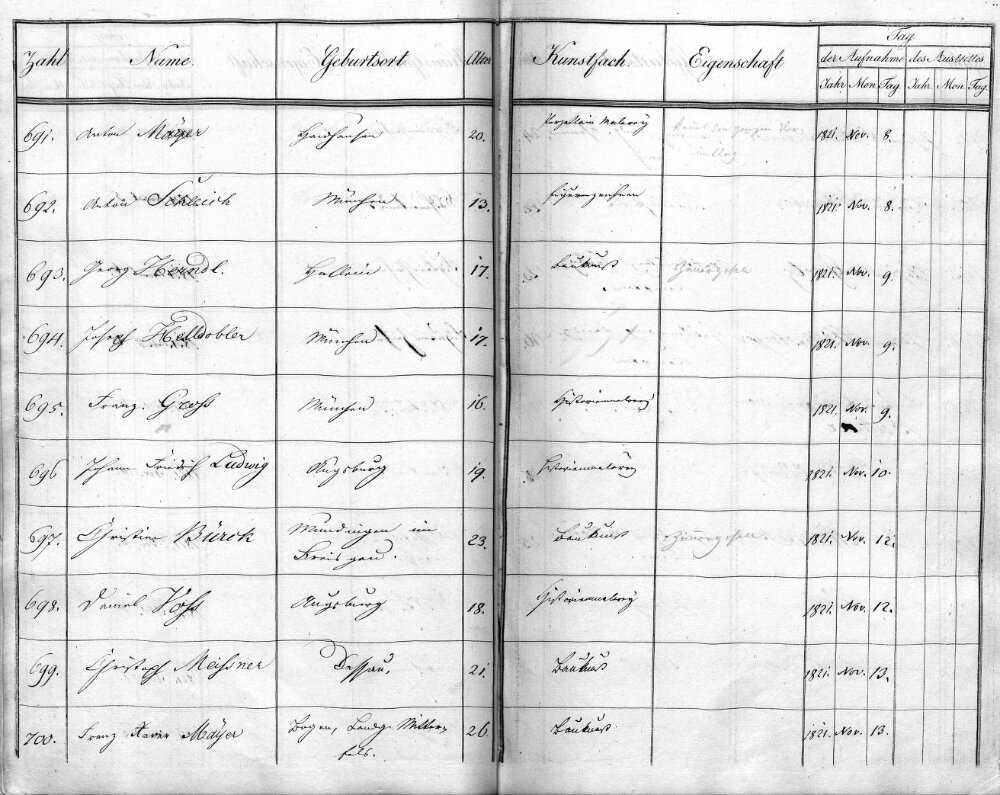 Zahl Name Geburtsort Alter Kunstfach Eigenschaft Tag
der Aufnahme des Austrittes
Jahr Mon. Tag. Jahr. Mon. Tag.
691. Anton Mayer Haidhausen 20. Porzellain Malerey 1821. Nov. 8.
692. Anton Schleich München 13. Figurenzeichnen 1821. Nov. 8.
693. Georg Herndl. Hallein 17. Baukunst 1821. Nov. 9.
694. Joseph Helldobler München 17. 1821. Nov. 9.
695. Franz. Groß München 16. Historienmalerey 1821. Nov. 9.
696 Johann Friedrich Ludwig Augsburg 19. Historienmalerey 1821. Nov. 10.
697. Christian Bürck Mundingen im 23. Baukunst 1821. Nov. 12.
Breisgau.
698. Daniel Voß Augsburg 18. Historienmalerey 1821. Nov. 12.
699. Christoph Meißner Dessau. 21. Baukunst 1821. Nov. 13.
700. Franz Xaver Mayer Bogen, Landg. Mitter- 26. Baukunst 1821. Nov. 13.
fels.